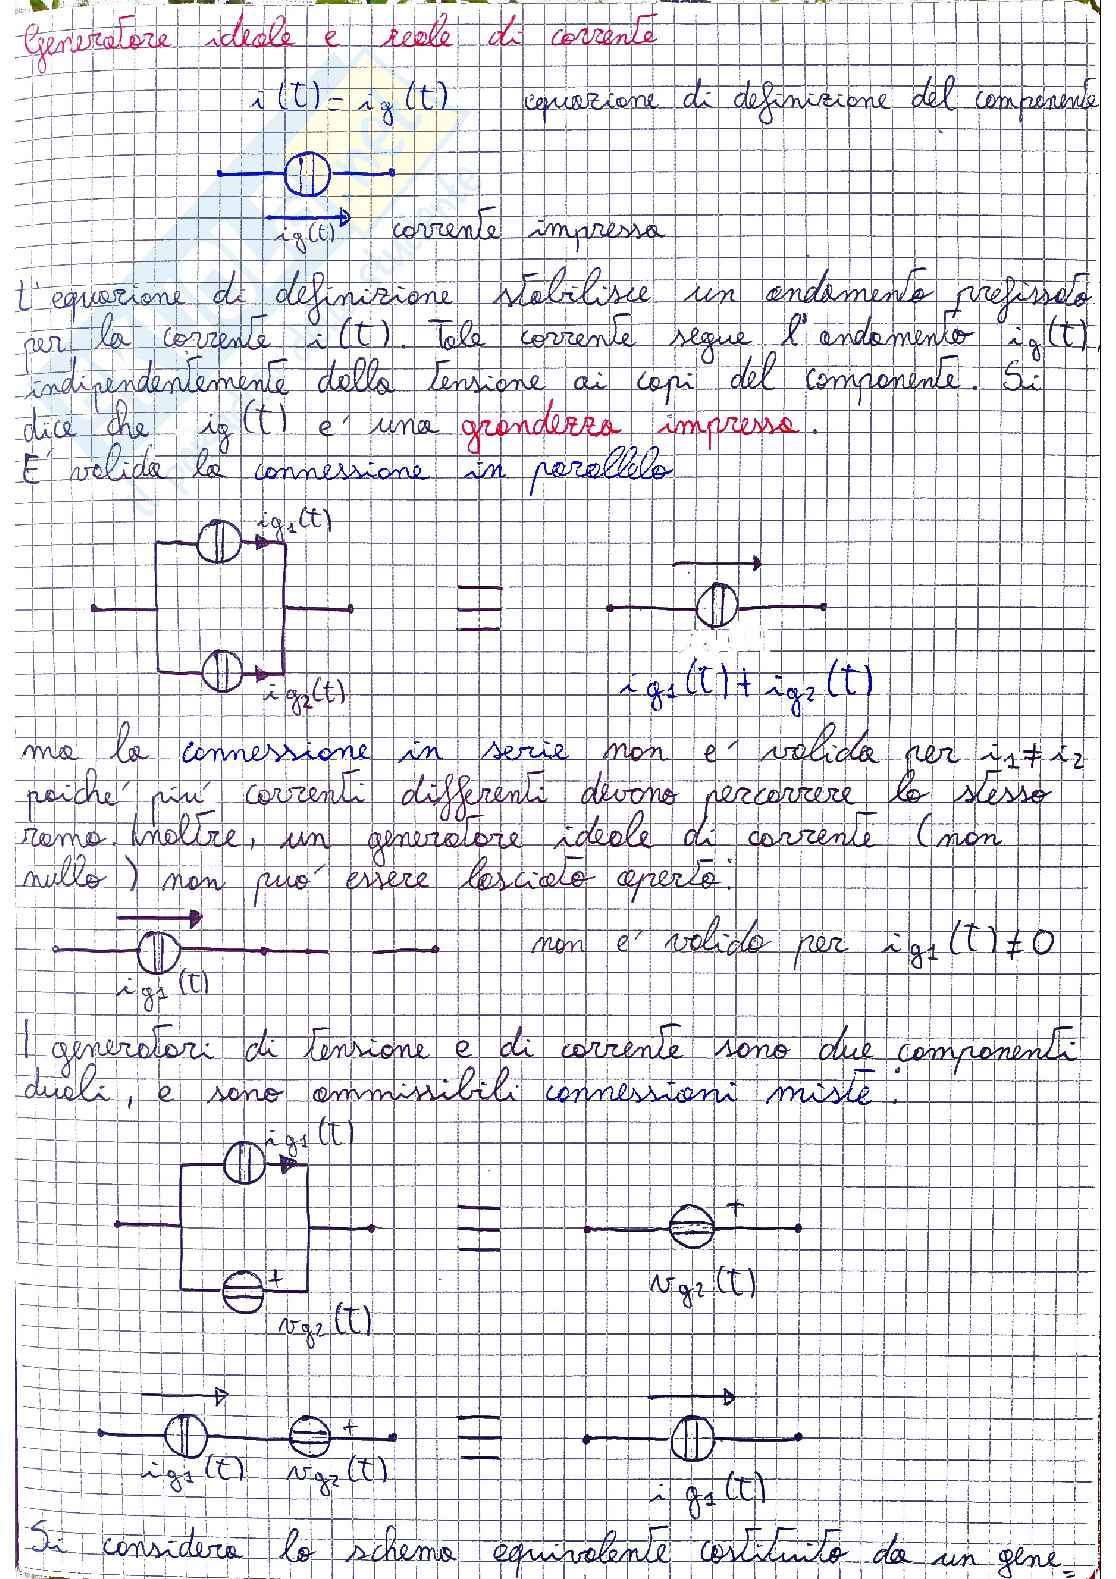 Generatore ideale e reale di corrente
i(t) = ig(t) equazione di definizione del componente
ig(t) corrente impressa
L'equazione di definizione stabilisce un andamento prefissato
per la corrente i(t). Tale corrente segue l'andamento ig(t),
indipendentemente dalla tensione ai capi del componente. Si
dice che ig(t) e' una grandezza impressa.
E' valida la connessione in parallelo
ig1(t)
ig2(t)
ig1(t) + ig2(t)
ma la connessione in serie non e' valida per i1 ≠ i2
poiche' piu' correnti differenti devono percorrere lo stesso
ramo. Inoltre, un generatore ideale di corrente (non
nullo) non puo' essere lasciato aperto:
ig1(t) non e' valido per ig1(t) ≠ 0
I generatori di tensione e di corrente sono due componenti
duali, e sono ammissibili connessioni miste:
ig1(t)
+
vg2(t)
+
vg2(t)
+
ig1(t) vg2(t)
ig1(t)
Si considera lo schema equivalente costituito da un gene=